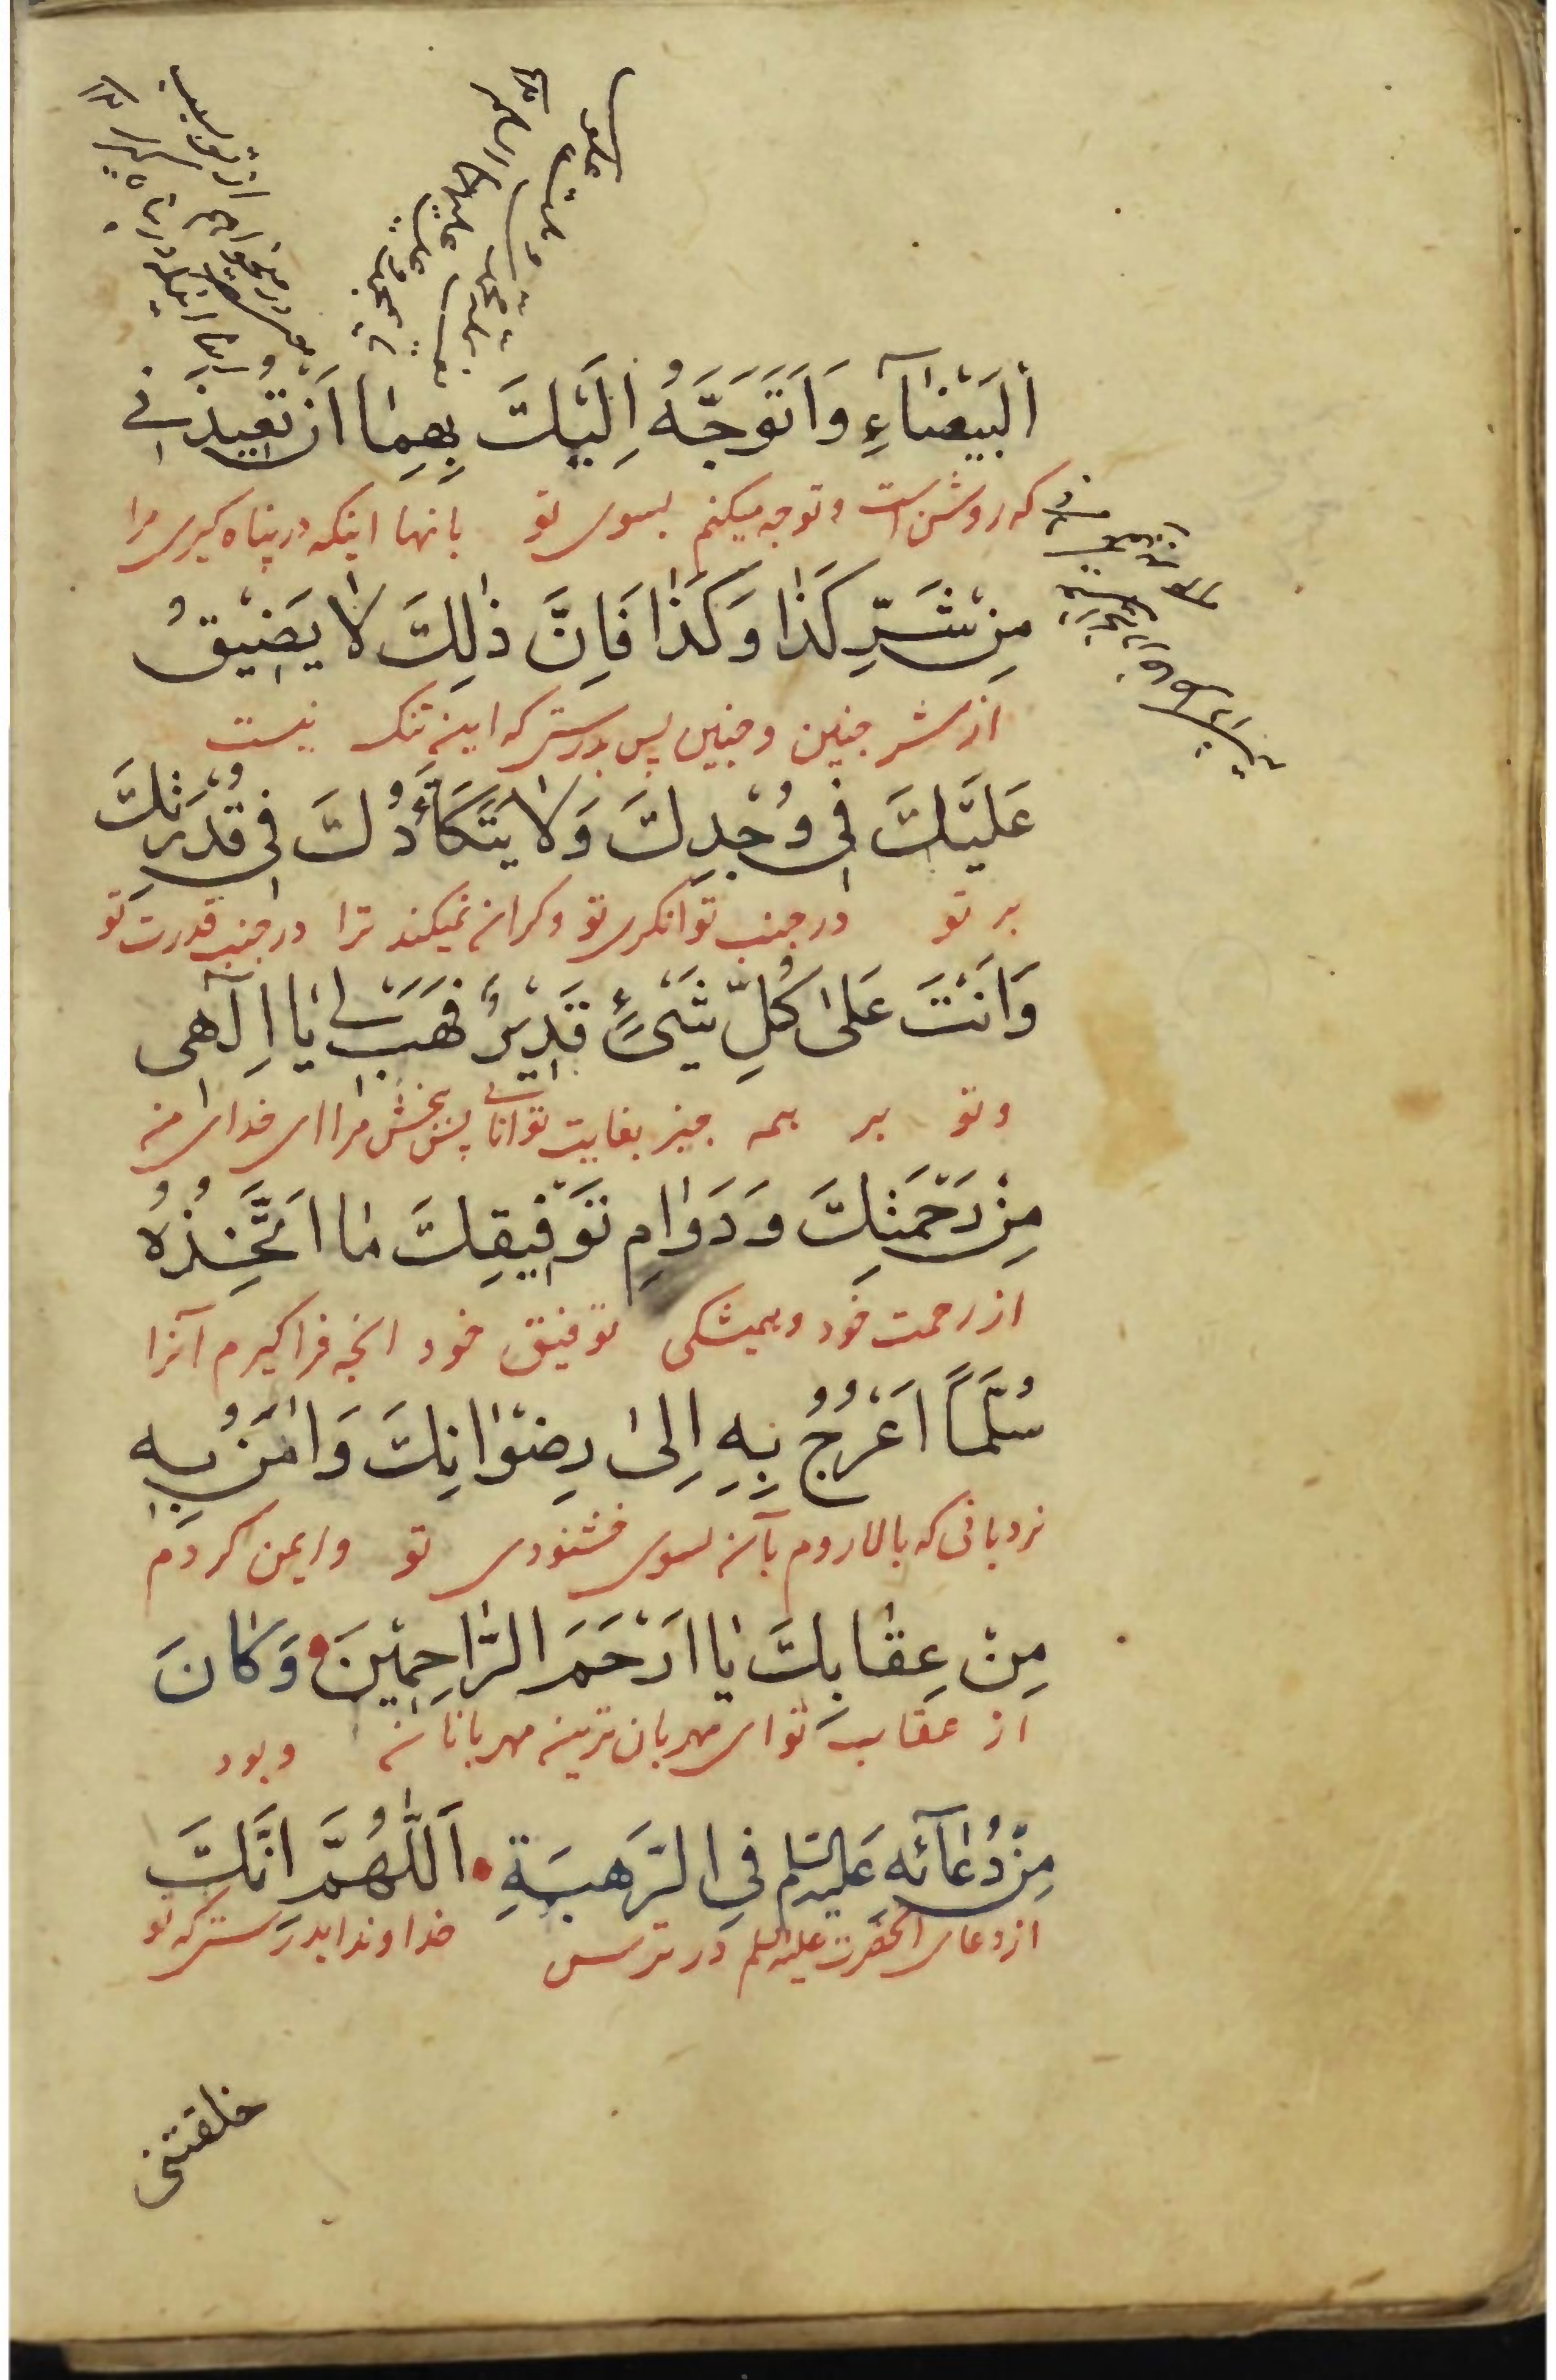 اَلْبَيْضٰآءِ وَاَتَوَجَّهُ اِلَيْكَ بِهِمٰا اَنْ تُعِيذَنى
که روشن است و توجه میکنم بسوی تو بانها اینکه در پناه کیری مرا
مِنْ شَرِّ كَذٰا وَكَذٰا فَاِنَّ ذٰلِكَ لٰا يَضِيْقُ
از شر چنین و چنین پس بدرستی که این تنک نیست
عَلَيْكَ فى وُجْدِكَ وَلٰا يَتَكَأَّدُكَ فى قُدْرَتِكَ
بر تو در جنب توانکری تو و کران نمیکند ترا در جنب قدرت تو
وَاَنْتَ عَلىٰ كُلِّ شَيْءٍ قَدِيْرٌ فَهَبْ لى يٰا اِلٓهى
و تو بر همه چیز بغایت توانائی پس بخش مرا ای خدای من
مِنْ رَحْمَتِكَ وَدَوٰامِ تَوْفِيقِكَ مٰا اَتَّخِذُهُ
از رحمت خود و همیشکی توفیق خود انچه فراکیرم آنرا
سُلَّمًا اَعْرُجُ بِهِ اِلىٰ رِضْوٰانِكَ وَاٰمَنُ بِهِ
نردبانی که بالا روم بآن بسوی خشنودی تو و ایمن کردم
مِنْ عِقٰابِكَ يٰا اَرْحَمَ الرّٰاحِمِيْنَ وَكٰانَ
از عقاب تو ای مهربان ترین مهربانان و بود
مِنْ دُعٰآئِهِ عَلَيْهِ السّلم فِى الرَّهْبَةِ اَللّٰهُمَّ اِنَّكَ
از دعای انحضرت علیه السلم در ترس خداوندا بدرستی که تو
خلقتنی